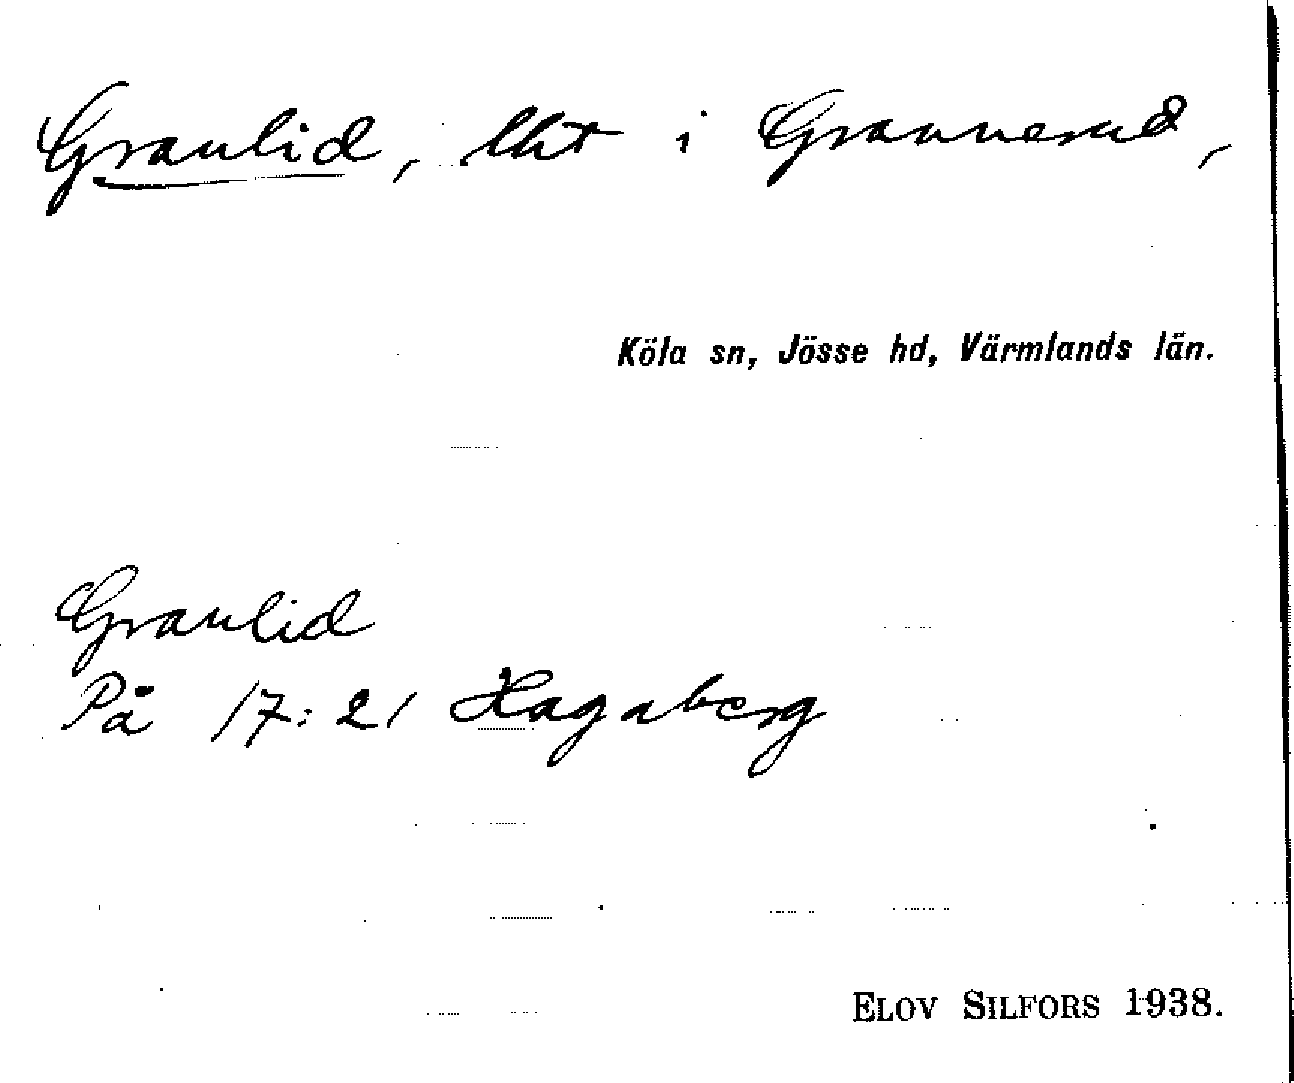 Granlid, lht i Grannerud,
Köla sn, Jösse hd, Värmlands län.
Granlid
På 17:21 Hagaberg
ELOV SILFORS 1938.